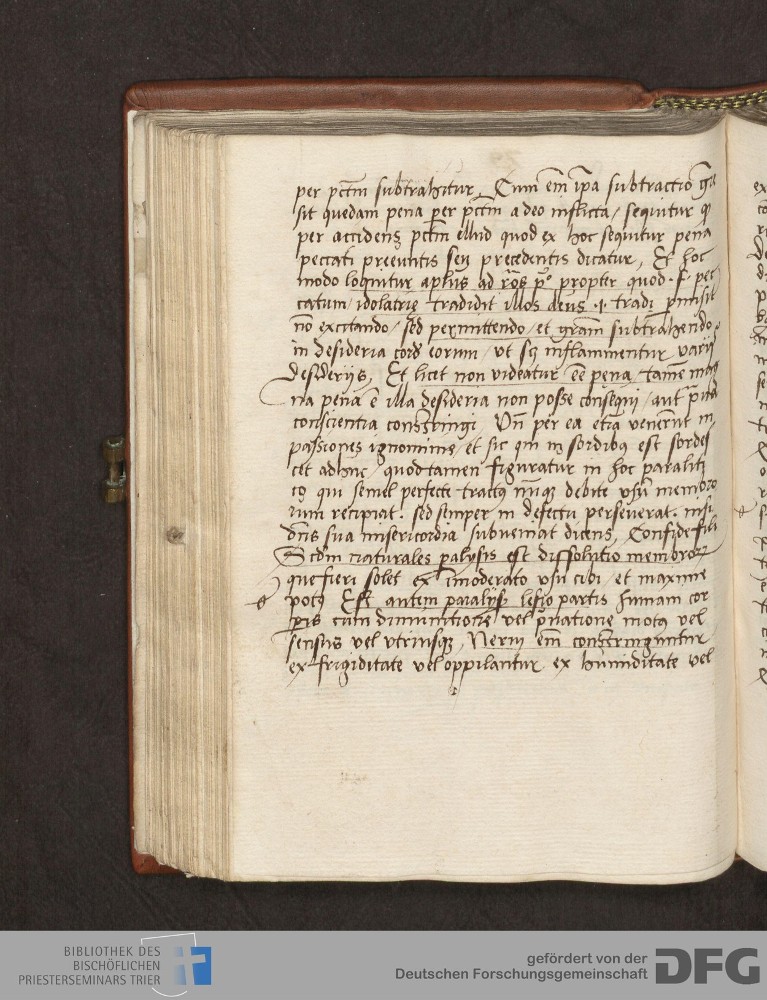 per pctm subtrahitur, Cum em ipa subtractio gre
sit quedam pena per pctm a deo inflicta / sequitur q
per accidens pctm illud quod ex hoc sequitur pena
peccati preeuntis seu precedentis dicatur, Et hoc
modo loquitur aplus ad ros p° propter quod .f. pec
catum / idolatrie tradidit illos deus .i. tradi pmisit
no excitando / sed permittendo / et gram subtrahendo
in desideria cord eorum / vt sij inflammentur varijs
desiderijs, Et licet non videatur ee pena, tame mag
na pena e illa desideria non posse consequi / aut
conscientia constringi, Vn per ea etia venerut in
passiones ignominie / et sic qui in sordibus est sordes
cet adhuc / quod tamen figuratur in hoc paraliti
co qui semel perfecte tractus nuqz debite vsu membro
rum recipiat. sed semper in defectu perseuerat. nisi
dns sua misericordia subueniat dicens, Confide fili
Scdm naturales paralysis est dissolutio membror
que fieri solet ex imoderato vsu cibi / et maxime
potus Est autem paralysis lesio partis humani cor
pis cum diminutione vel priuatione motus vel
sensus vel vtriusqz, Nerui em constringuntur
ex frigiditate vel oppilantur ex humiditate vel
BIBLIOTHEK DES
BISCHÖFLICHEN
PRIESTERSEMINARS TRIER
gefördert von der
Deutschen Forschungsgemeinschaft
DFG